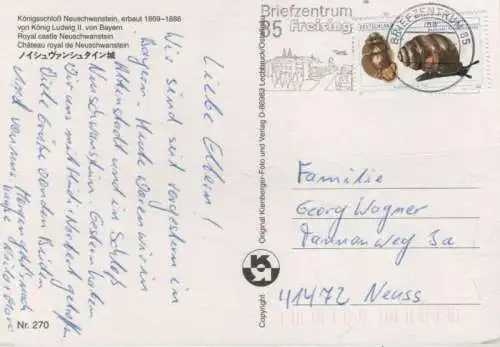 Königsschloß Neuschwanstein, erbaut 1869–1886
von König Ludwig II. von Bayern
Royal castle Neuschwanstein
Château royal de Neuschwanstein
ノイシュヴァンシュタイン城
Liebe Eltern!
Wir sind seit vorgestern in
Bayern. Heute waren wir in
Altenstadt und in Schloß
Neuschwanstein. Gestern haben
wir uns mit Heidi + Norbert getroffen
Liebe Grüße von den Beiden
und von uns. Morgen geht's noch
Nr. 270
Original Kienberger-Foto und Verlag D-86983 Lechbruck/Ostallgäu
Copyright
Briefzentrum
85 Freising
BRIEFZENTRUM 85
Familie
Georg Wagner
Tannenweg 3a
41472 Neuss